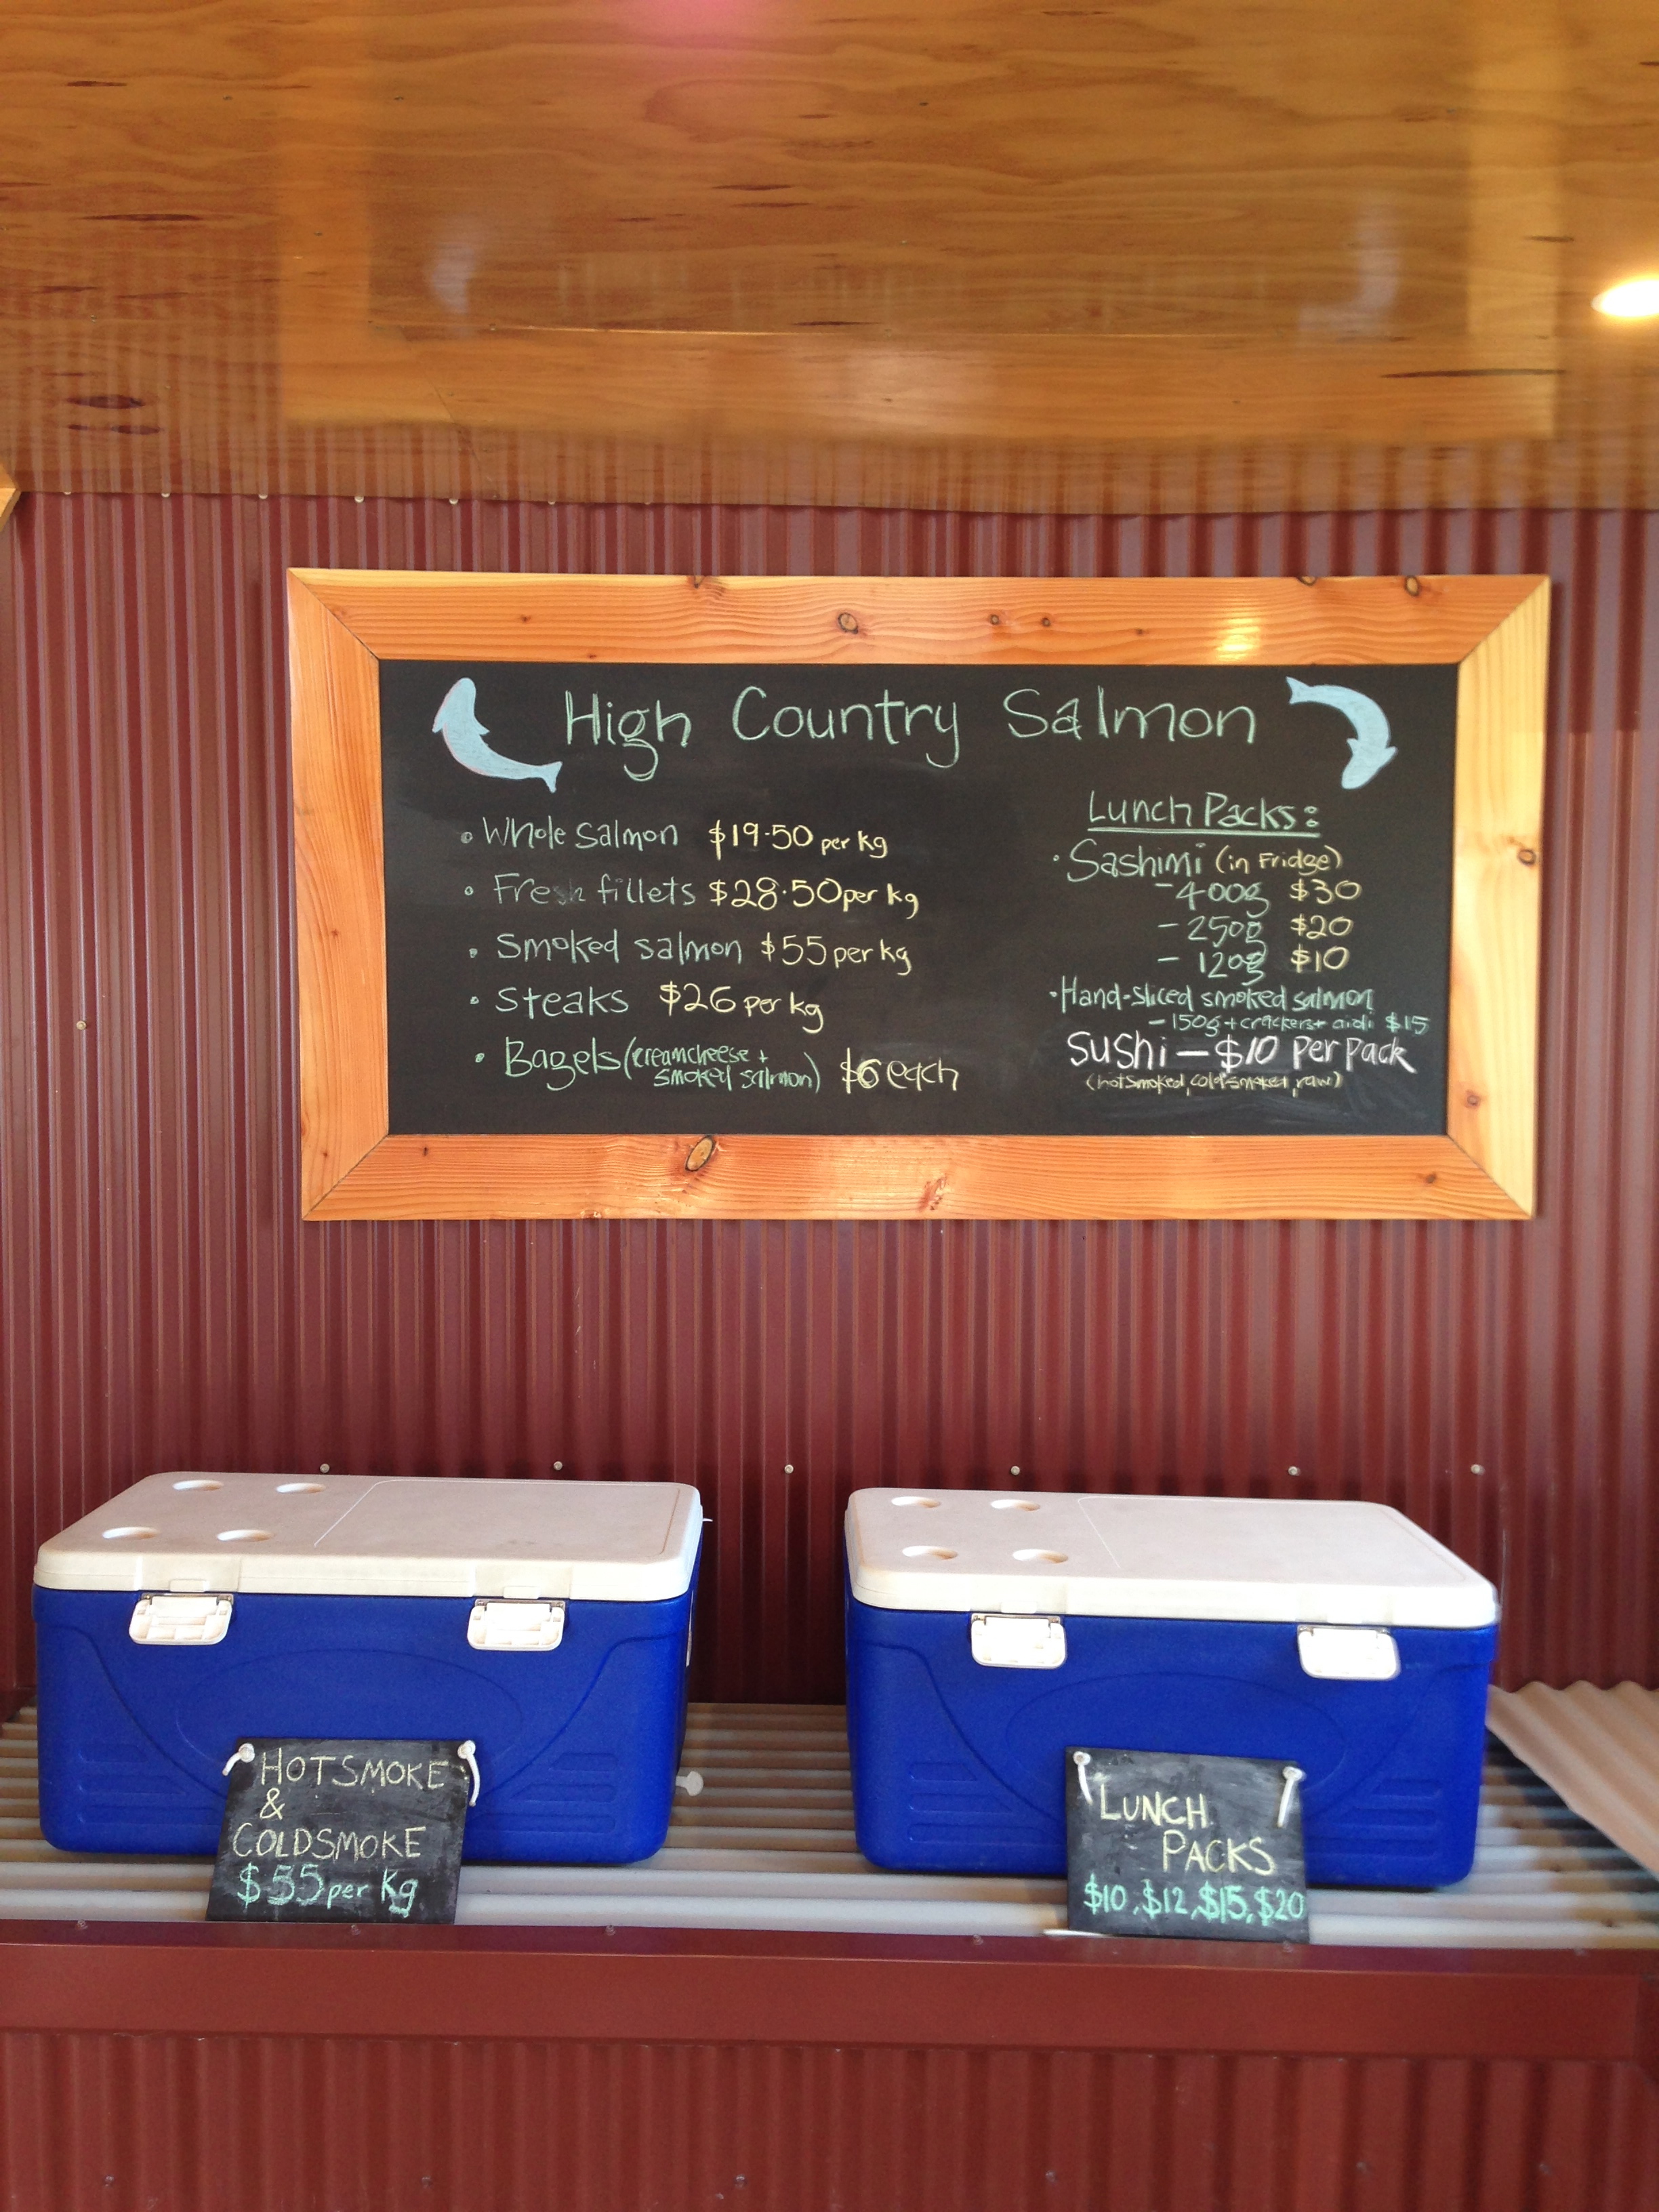 High Country Salmon
• Whole Salmon $19.50 per kg
• Fresh fillets $28.50 per kg
• Smoked salmon $55 per kg
• Steaks $26 per kg
• Bagels (creamcheese +
smoked salmon) $6 each
Lunch Packs:
• Sashimi (in Fridge)
- 400g $30
- 250g $20
- 120g $10
• Hand-sliced smoked salmon
- 150g + crackers + aioli $15
Sushi - $10 per pack
(hotsmoked, coldsmoked, raw)
HOTSMOKE
&
COLDSMOKE
$55 per Kg
LUNCH
PACKS
$10, $12, $15, $20